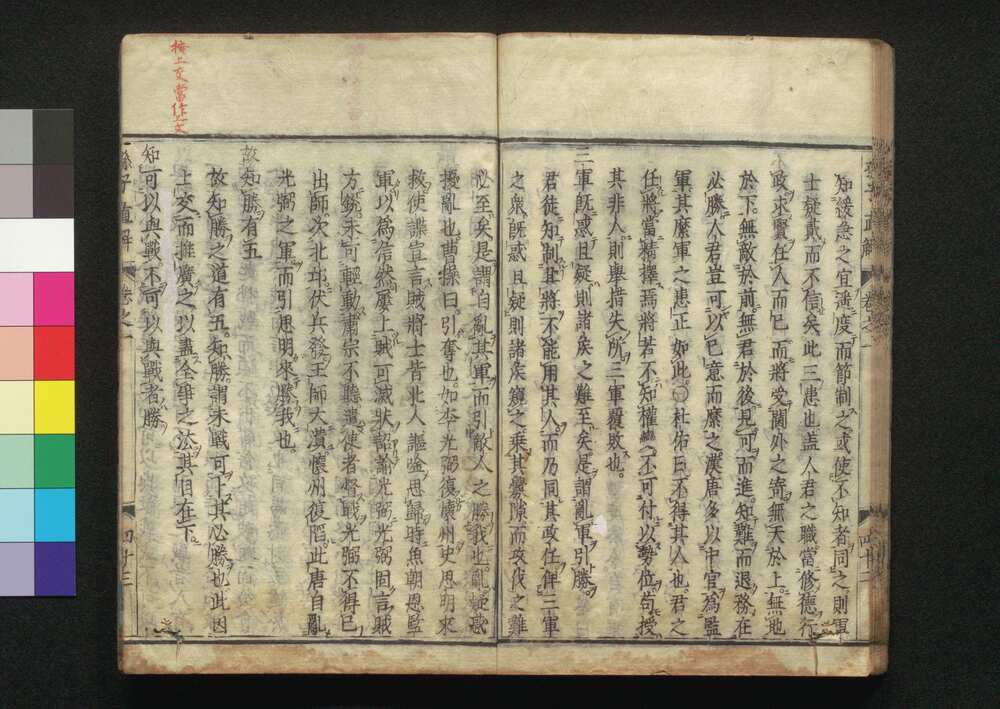 知緩急之宜濶度而節制之或使不知者同之則軍
士疑貳而不信矣此三患也盖人君之職當修德行
政求賢任人而已而將受閫外之寄無天於上無地
於下無敵於前無君於後見可而進知難而退務在
必勝人君豈可以已意而縻之漢唐多以中官為監
軍其縻軍之患正如此〇杜佑曰不得其人也君之
任將當精擇焉將若不知權變不可付以勢位苟授
其非人則舉措失所三軍覆敗也
三軍旣惑且疑則諸矦之難至矣是謂亂軍引勝
君徒知制其將不能用其人而乃同其政任俾三軍
之衆旣惑且疑則諸矦窺之乘其釁隙而攻伐之難
必至矣是謂自亂其軍而引敵人之勝我也亂疑惑
擾亂也曹操曰引奪也如李光弼復懷州史思明來
救使諜宣言賊將士皆北人謳唫思歸時魚朝恩監
軍以爲信然屢上賊可滅狀詔諭光弼光弼固言賊
方銳未可輕動肅宗不聽遣使者督戰光弼不得已
出師次北邙伏兵發王師大潰懷州復䧟此唐自亂
光弼之軍而引思明來勝我也
故知勝有五
故知勝之道有五知勝謂未戰可卜其必勝也此因
上交而推廣之以盡全爭之法其目在下
知可以與戰不可以與戰者勝
孫子直解 卷之一 四十三
按上交當作上文
四十二